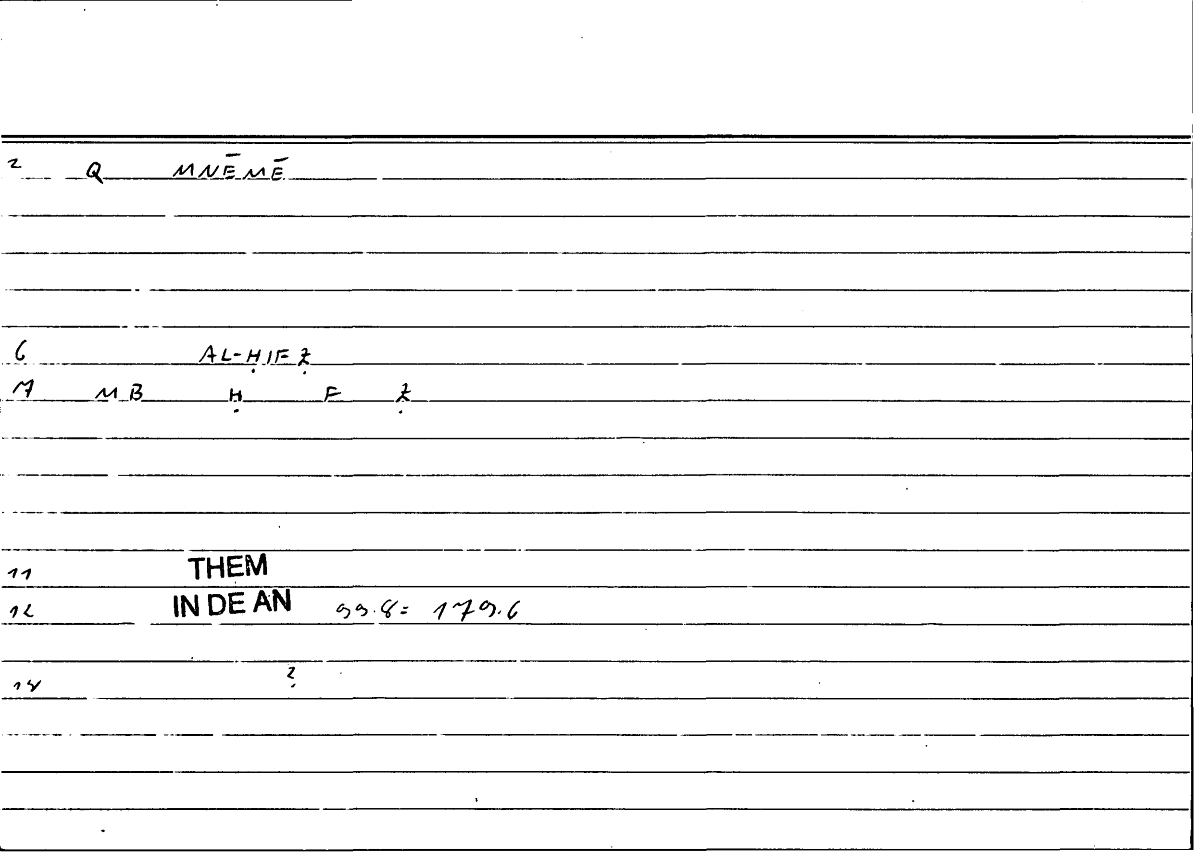 2 Q MNĒMĒ
6 AL-ḤIFẒ
7 MB Ḥ F Ẓ
11 THEM
12 IN DE AN 99.8= 179.6
14 ?